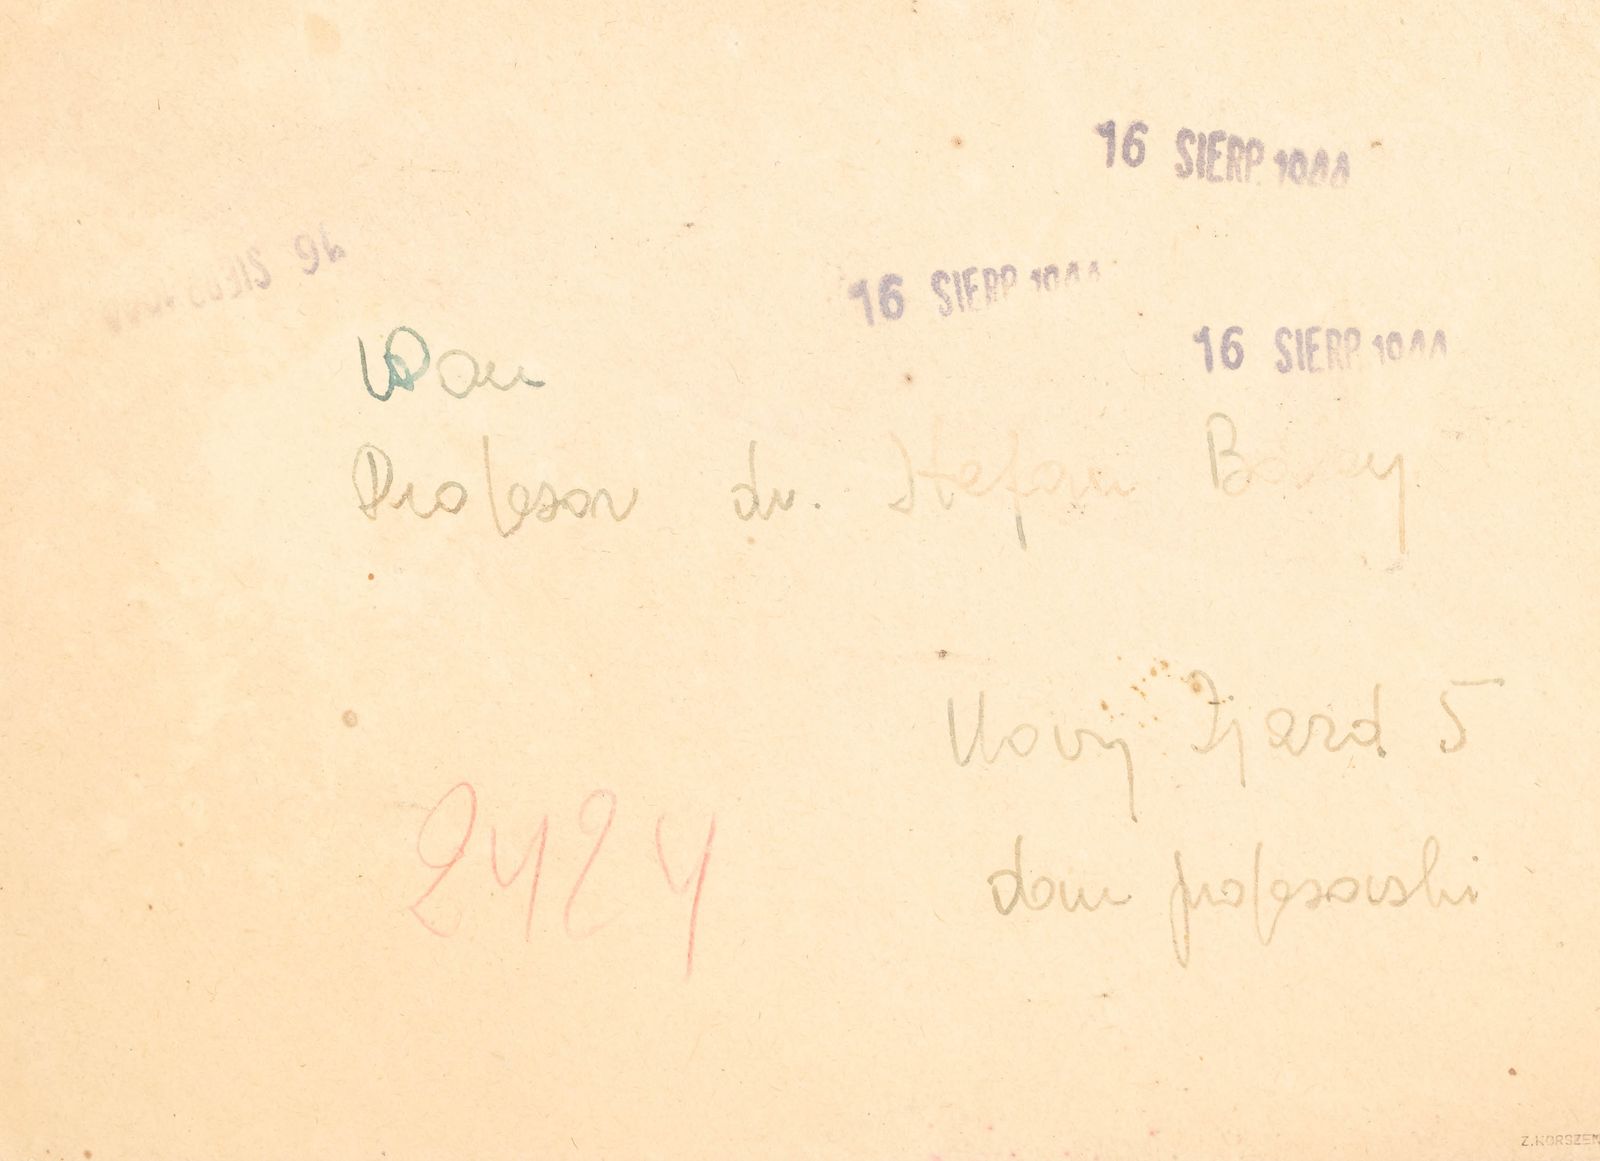 16 SIERP 1944
16 SIERP 1944
16 SIERP 1944
16 SIERP
Pan
Profesor dr. Stefan Baley
Nowy Zjazd 5
dom profesorski
2424
Z.KORSZEŃ